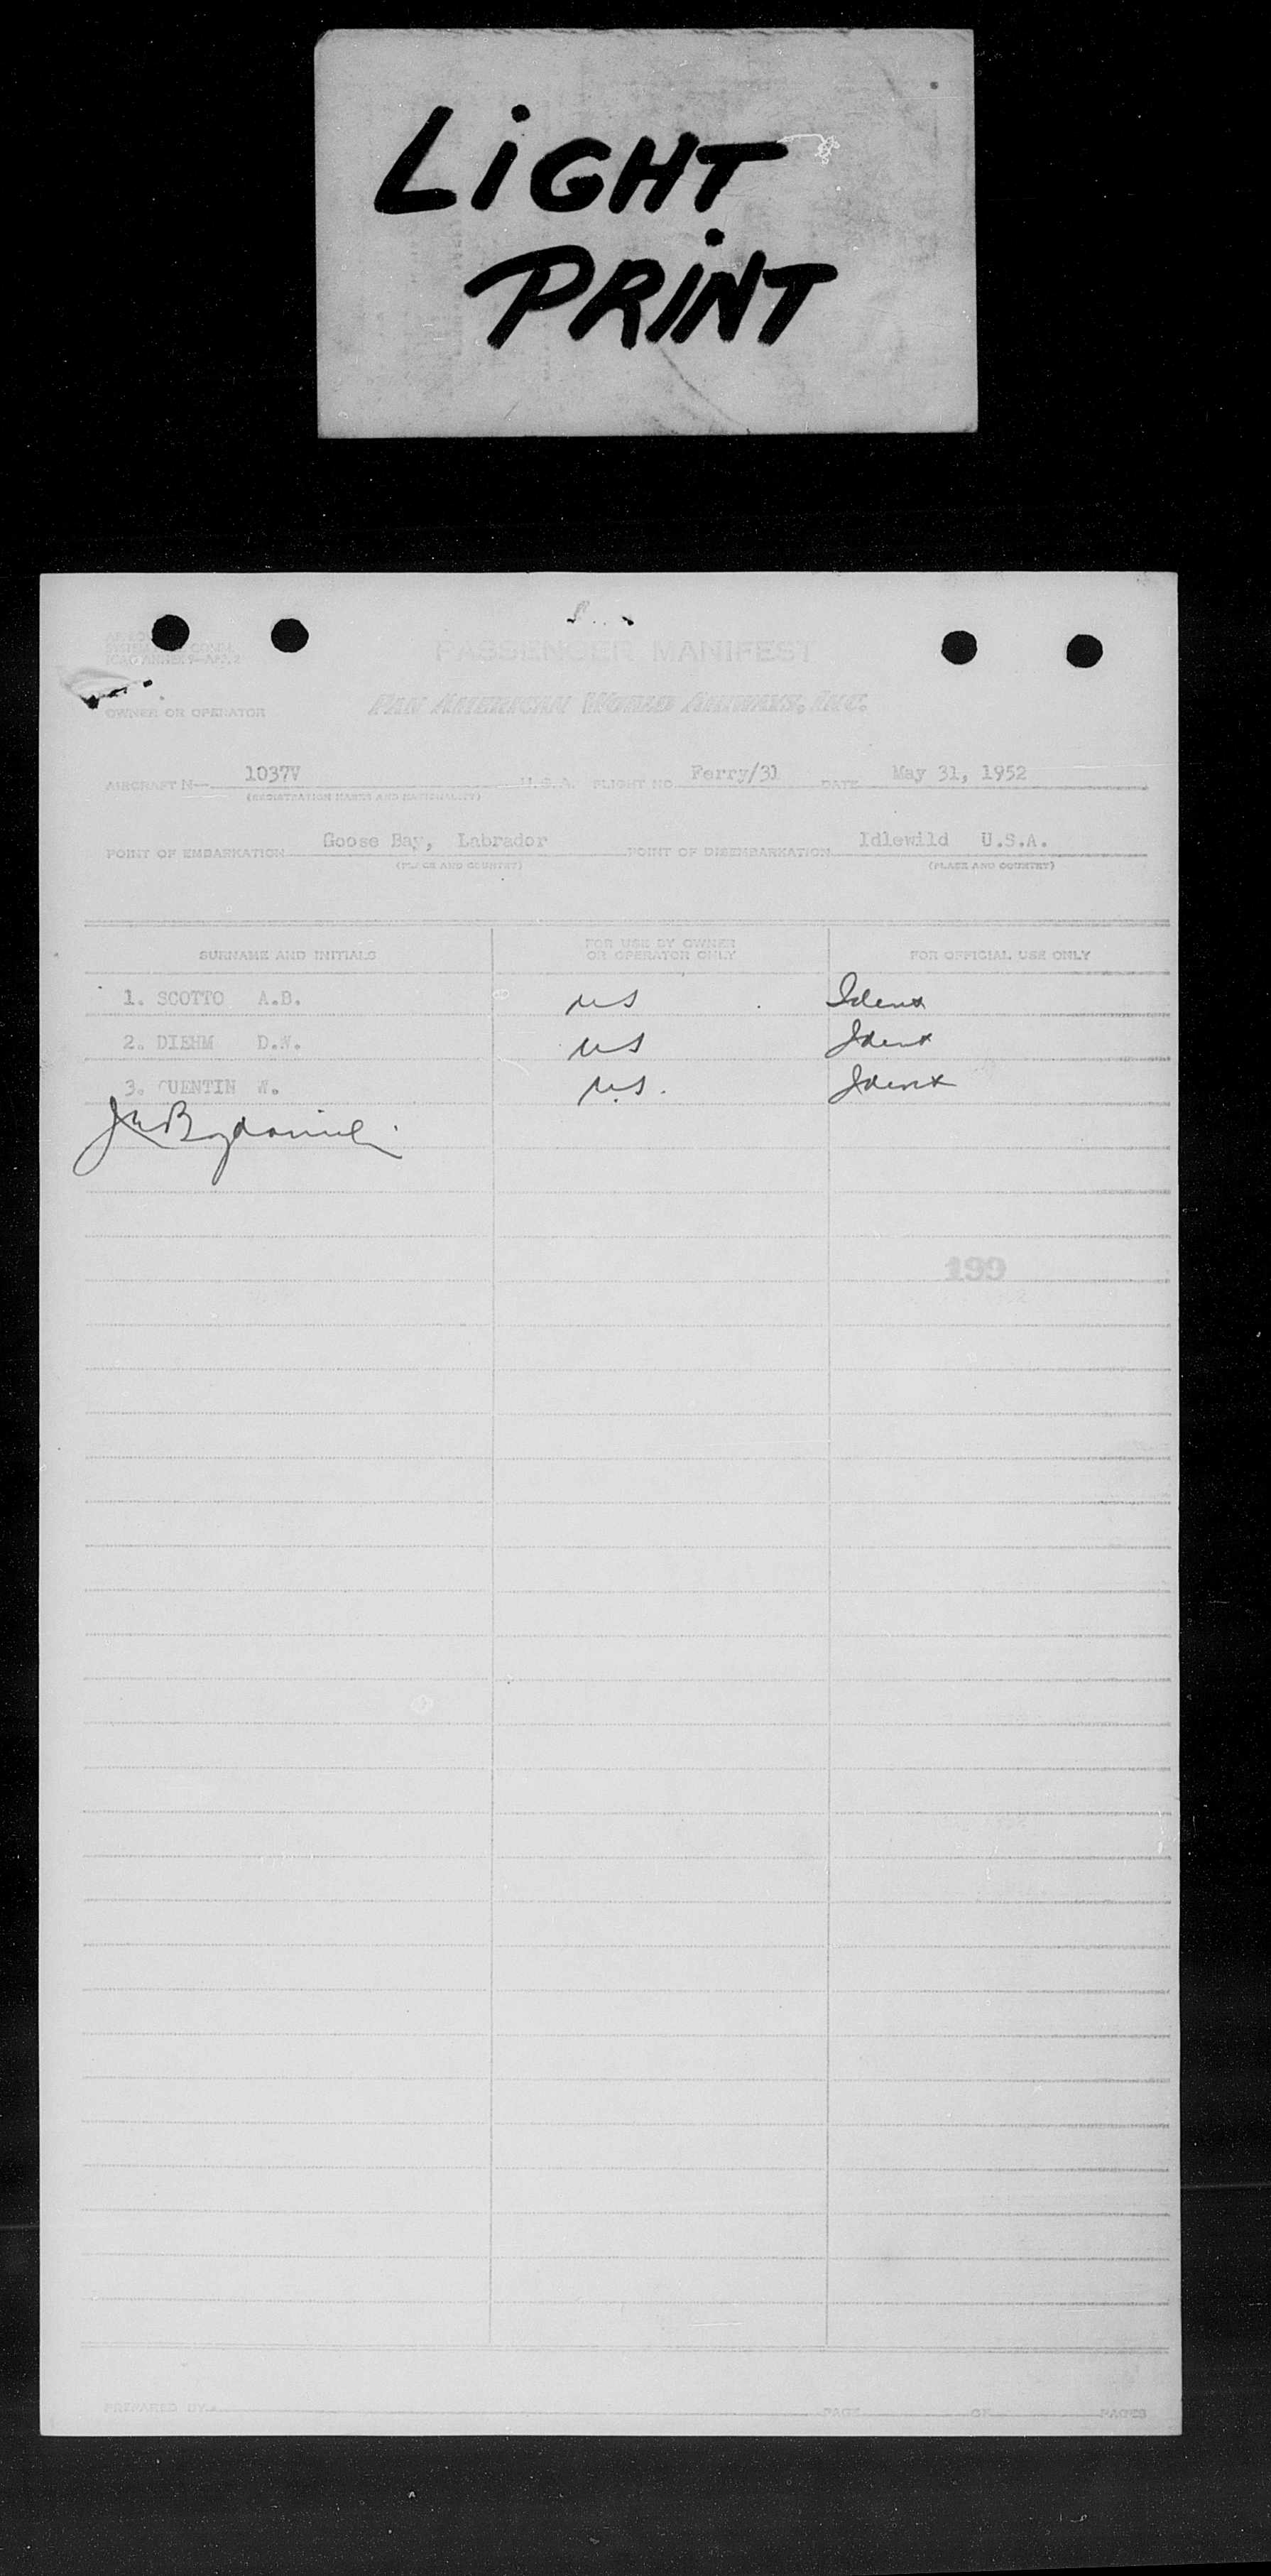 LiGHT
PRINT
PASSENGER MANIFEST
OWNER OR OPERATOR PAN AMERICAN WORLD AIRWAYS, INC.
AIRCRAFT N— 1037V U.S.A. FLIGHT NO. Ferry/31 DATE May 31, 1952
(REGISTRATION MARKS AND NATIONALITY)
POINT OF EMBARKATION Goose Bay, Labrador POINT OF DISEMBARKATION Idlewild U.S.A.
(PLACE AND COUNTRY) (PLACE AND COUNTRY)
SURNAME AND INITIALS FOR USE BY OWNER OR OPERATOR ONLY FOR OFFICIAL USE ONLY
1. SCOTTO A.B. US Ident
2. DIEHM D.W. US Ident
3. QUENTIN W. U.S. Ident
199
PREPARED BY PAGE OF PAGES